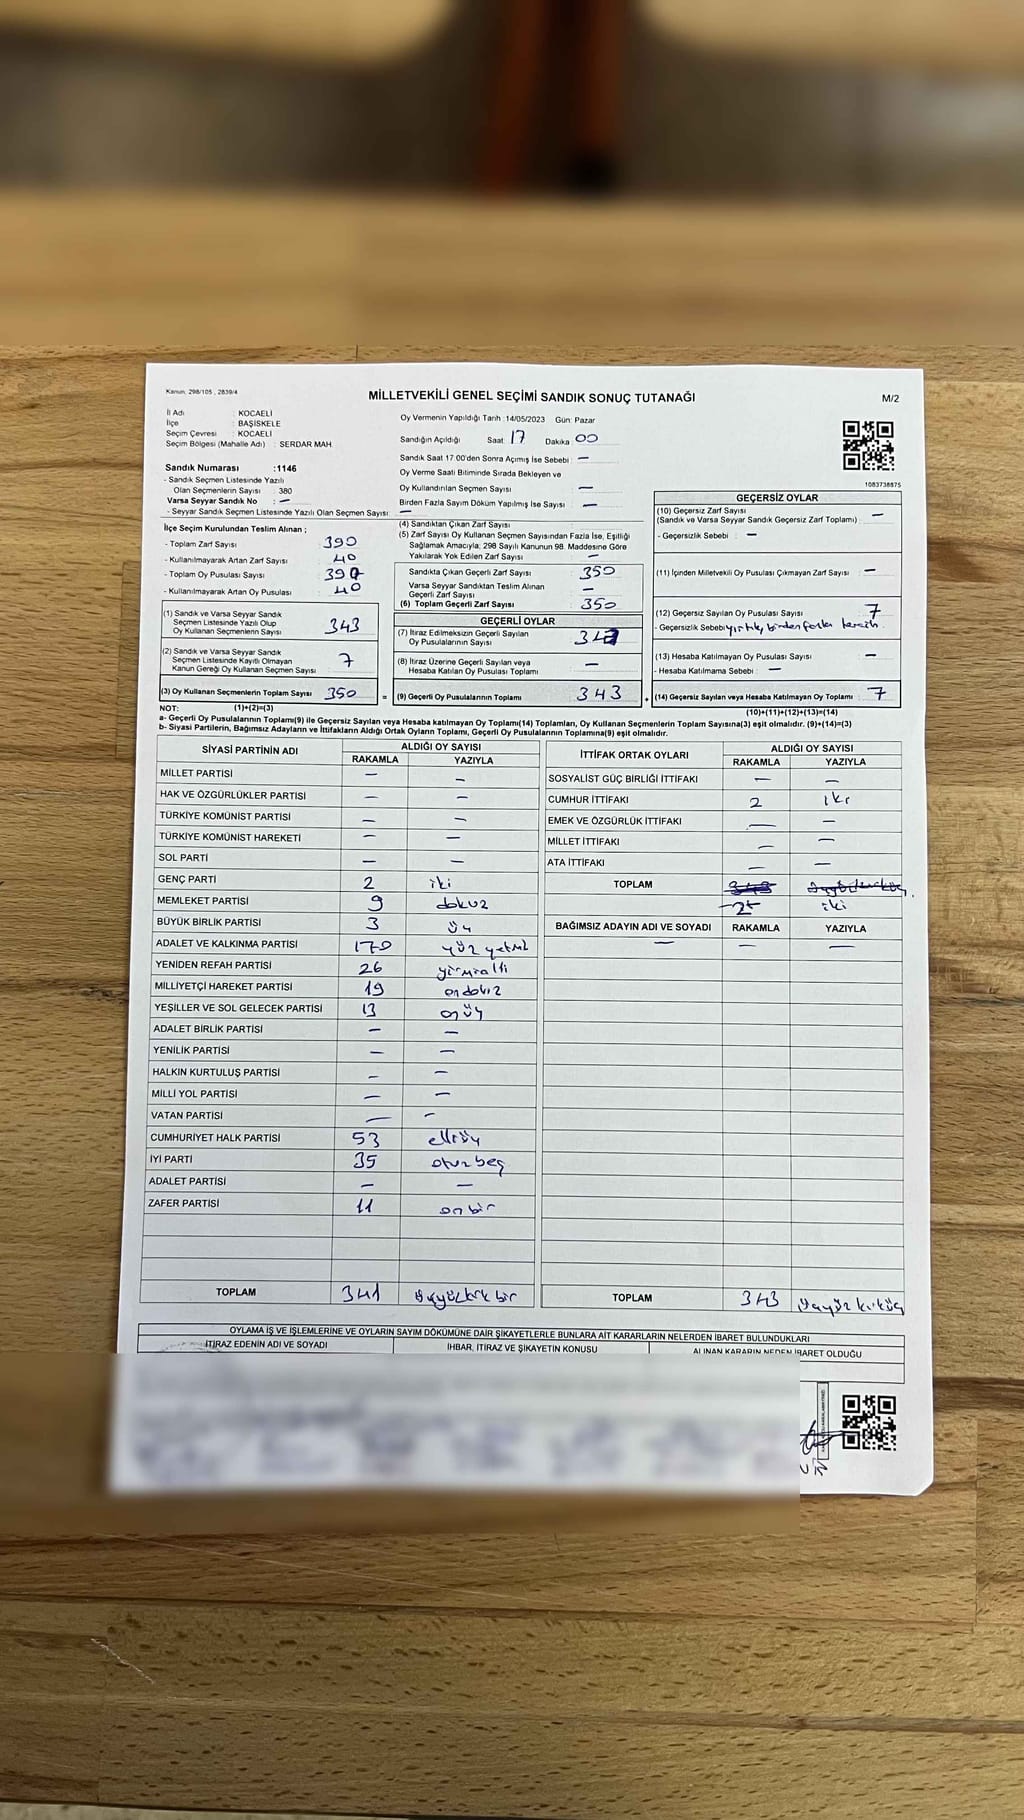 Kanun, 298/105 , 2839/4
MİLLETVEKİLİ GENEL SEÇİMİ SANDIK SONUÇ TUTANAĞI
M/2
İl Adı : KOCAELİ
İlçe : BAŞİSKELE
Seçim Çevresi : KOCAELİ
Seçim Bölgesi (Mahalle Adı) : SERDAR MAH.
Sandık Numarası :1146
- Sandık Seçmen Listesinde Yazılı
Olan Seçmenlerin Sayısı : 380
Varsa Seyyar Sandık No : —
- Seyyar Sandık Seçmen Listesinde Yazılı Olan Seçmen Sayısı : —
Oy Vermenin Yapıldığı Tarih : 14/05/2023 Gün: Pazar
Sandığın Açıldığı Saat: 17 Dakika: 00
Sandık Saat 17:00'den Sonra Açımış İse Sebebi : —
Oy Verme Saati Bitiminde Sırada Bekleyen ve
Oy Kullandırılan Seçmen Sayısı : —
Birden Fazla Sayım Döküm Yapılmış İse Sayısı : —
1083738875
İlçe Seçim Kurulundan Teslim Alınan ;
- Toplam Zarf Sayısı : 390
- Kullanılmayarak Artan Zarf Sayısı : 40
- Toplam Oy Pusulası Sayısı : 390
- Kullanılmayarak Artan Oy Pusulası : 40
(1) Sandık ve Varsa Seyyar Sandık
Seçmen Listesinde Yazılı Olup
Oy Kullanan Seçmenlerin Sayısı : 343
(2) Sandık ve Varsa Seyyar Sandık
Seçmen Listesinde Kayıtlı Olmayan
Kanun Gereği Oy Kullanan Seçmen Sayısı : 7
(3) Oy Kullanan Seçmenlerin Toplam Sayısı : 350
(4) Sandıktan Çıkan Zarf Sayısı :
(5) Zarf Sayısı Oy Kullanan Seçmen Sayısından Fazla İse, Eşitliği
Sağlamak Amacıyla; 298 Sayılı Kanunun 98. Maddesine Göre
Yakılarak Yok Edilen Zarf Sayısı : —
Sandıkta Çıkan Geçerli Zarf Sayısı : 350
Varsa Seyyar Sandıktan Teslim Alınan
Geçerli Zarf Sayısı : —
(6) Toplam Geçerli Zarf Sayısı : 350
GEÇERLİ OYLAR
(7) İtiraz Edilmeksizin Geçerli Sayılan
Oy Pusulalarının Sayısı : 343
(8) İtiraz Üzerine Geçerli Sayılan veya
Hesaba Katılan Oy Pusulası Toplamı : —
= (9) Geçerli Oy Pusulalarının Toplamı : 343
GEÇERSİZ OYLAR
(10) Geçersiz Zarf Sayısı
(Sandık ve Varsa Seyyar Sandık Geçersiz Zarf Toplamı) : —
- Geçersizlik Sebebi : —
(11) İçinden Milletvekili Oy Pusulası Çıkmayan Zarf Sayısı : —
(12) Geçersiz Sayılan Oy Pusulası Sayısı : 7
- Geçersizlik Sebebi : yırtık, birden fazla tercih
(13) Hesaba Katılmayan Oy Pusulası Sayısı : —
- Hesaba Katılmama Sebebi : —
+ (14) Geçersiz Sayılan veya Hesaba Katılmayan Oy Toplamı : 7
NOT: (1)+(2)=(3) (10)+(11)+(12)+(13)=(14)
a- Geçerli Oy Pusulalarının Toplamı(9) ile Geçersiz Sayılan veya Hesaba katılmayan Oy Toplamı(14) Toplamları, Oy Kullanan Seçmenlerin Toplam Sayısına(3) eşit olmalıdır. (9)+(14)=(3)
b- Siyasi Partilerin, Bağımsız Adayların ve İttifakların Aldığı Ortak Oyların Toplamı, Geçerli Oy Pusulalarının Toplamına(9) eşit olmalıdır.
SİYASİ PARTİNİN ADI ALDIĞI OY SAYISI
RAKAMLA YAZIYLA
MİLLET PARTİSİ — —
HAK VE ÖZGÜRLÜKLER PARTİSİ — —
TÜRKİYE KOMÜNİST PARTİSİ — —
TÜRKİYE KOMÜNİST HAREKETİ — —
SOL PARTİ — —
GENÇ PARTİ 2 iki
MEMLEKET PARTİSİ 9 dokuz
BÜYÜK BİRLİK PARTİSİ 3 üç
ADALET VE KALKINMA PARTİSİ 170 yüz yetmiş
YENİDEN REFAH PARTİSİ 26 yirmialtı
MİLLİYETÇİ HAREKET PARTİSİ 19 ondokuz
YEŞİLLER VE SOL GELECEK PARTİSİ 13 onüç
ADALET BİRLİK PARTİSİ — —
YENİLİK PARTİSİ — —
HALKIN KURTULUŞ PARTİSİ — —
MİLLİ YOL PARTİSİ — —
VATAN PARTİSİ — —
CUMHURİYET HALK PARTİSİ 53 elliüç
İYİ PARTİ 35 otuzbeş
ADALET PARTİSİ — —
ZAFER PARTİSİ 11 onbir
TOPLAM 341 üçyüzkırkbir
İTTİFAK ORTAK OYLARI ALDIĞI OY SAYISI
RAKAMLA YAZIYLA
SOSYALİST GÜÇ BİRLİĞİ İTTİFAKI — —
CUMHUR İTTİFAKI 2 iki
EMEK VE ÖZGÜRLÜK İTTİFAKI — —
MİLLET İTTİFAKI — —
ATA İTTİFAKI — —
TOPLAM 343
2 iki
BAĞIMSIZ ADAYIN ADI VE SOYADI RAKAMLA YAZIYLA
— — —
TOPLAM 343 üçyüzkırküç
OYLAMA İŞ VE İŞLEMLERİNE VE OYLARIN SAYIM DÖKÜMÜNE DAİR ŞİKAYETLERLE BUNLARA AİT KARARLARIN NELERDEN İBARET BULUNDUKLARI
İTİRAZ EDENİN ADI VE SOYADI İHBAR, İTİRAZ VE ŞİKAYETİN KONUSU ALINAN KARARIN NEDEN İBARET OLDUĞU